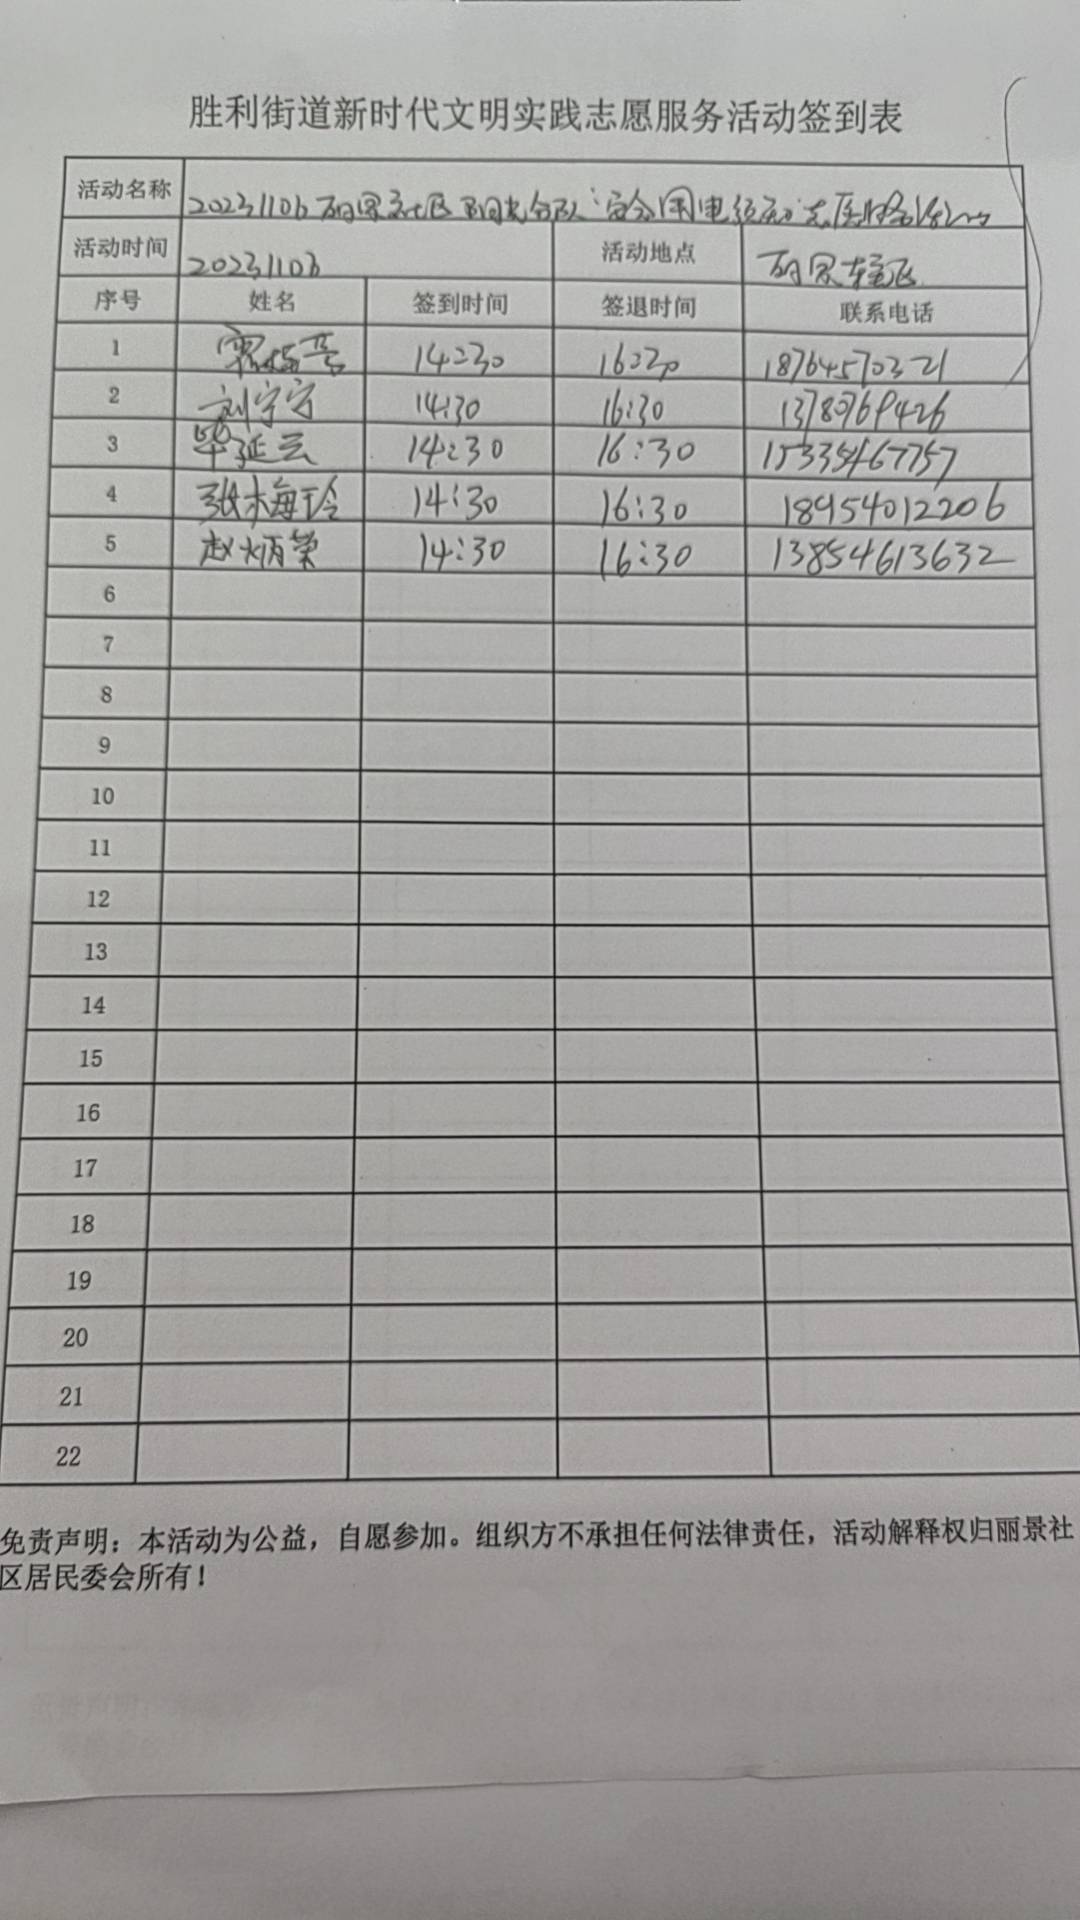 胜利街道新时代文明实践志愿服务活动签到表
活动名称 20231103 丽景社区阳光分队"安全用电须知"志愿服务活动
活动时间 20231103 活动地点 丽景辖区
序号 姓名 签到时间 签退时间 联系电话
1 14:30 16:30 18764570321
2 刘宁宁 14:30 16:30 13780769426
3 毕延云 14:30 16:30 15335467757
4 张梅玲 14:30 16:30 18954012206
5 赵炳荣 14:30 16:30 13854613632
6
7
8
9
10
11
12
13
14
15
16
17
18
19
20
21
22
免责声明：本活动为公益，自愿参加。组织方不承担任何法律责任，活动解释权归丽景社
区居民委会所有！